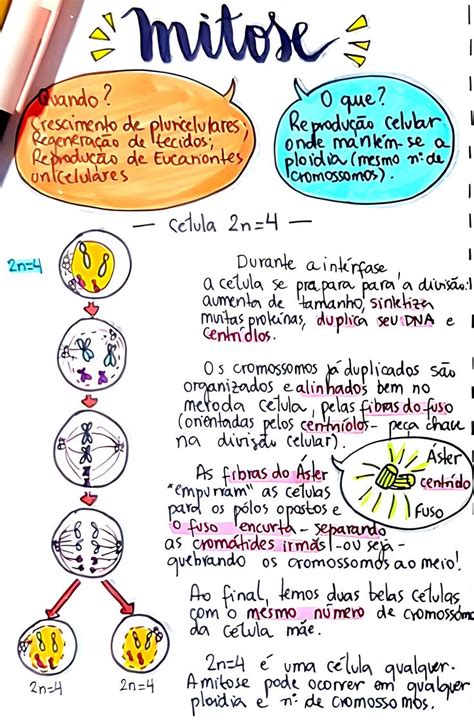 mitose
Quando?
Crescimento de pluricelulares;
Regeneração de tecidos;
Reprodução de Eucariontes
unicelulares
O que?
Reprodução celular
onde mantém-se a
ploidia (mesmo nº de
cromossomos).
— Celula 2n=4 —
2n=4
Durante a intérfase,
a célula se prepara para a divisão:
aumenta de tamanho, sintetiza
muitas proteínas, duplica seu DNA e
centríolos.
Os cromossomos já duplicados são
organizados e alinhados bem no
meio da célula, pelas fibras do fuso
(orientadas pelos centríolos - peça chave
na divisão celular).
Áster
centríolo
Fuso
As fibras do Áster
"empurram" as células
para os pólos opostos e
o fuso encurta - separando
as cromátides irmãs - ou seja -
quebrando os cromossomos ao meio!
Ao final, temos duas belas células
com o mesmo número de cromossomo
da célula mãe.
2n=4
2n=4
2n=4 é uma célula qualquer.
A mitose pode ocorrer em qualquer
ploidia e nº de cromossomos.